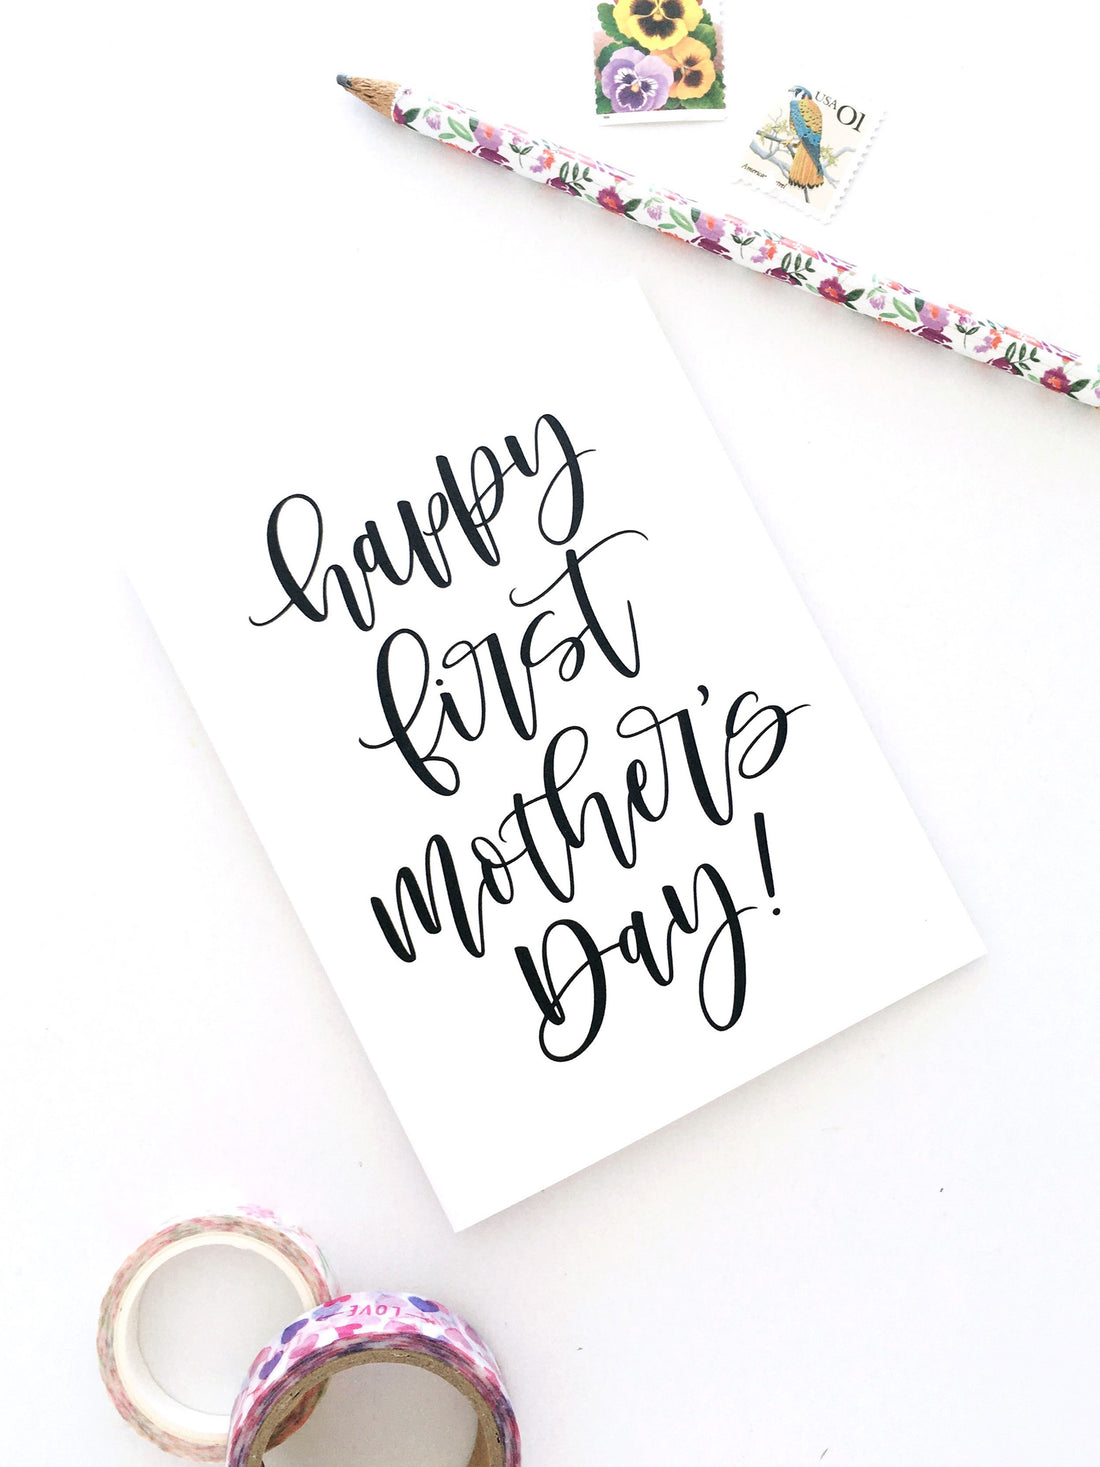 USA 01
America
happy
first
mother's
Day!
LOVE